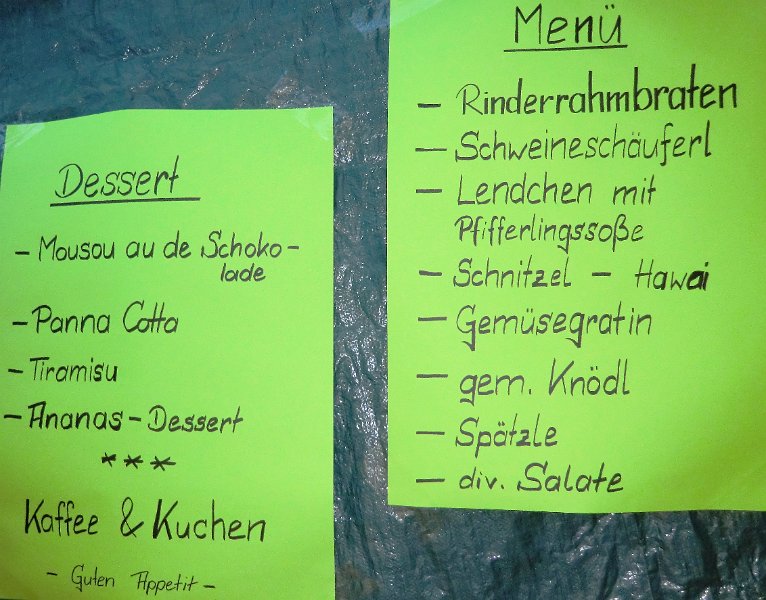 Dessert
- Mousou au de Schoko-
lade
- Panna Cotta
- Tiramisu
- Ananas - Dessert
***
Kaffee & Kuchen
- Guten Appetit -
Menü
- Rinderrahmbraten
- Schweineschäuferl
- Lendchen mit
Pfifferlingssoße
- Schnitzel - Hawai
- Gemüsegratin
- gem. Knödl
- Spätzle
- div. Salate